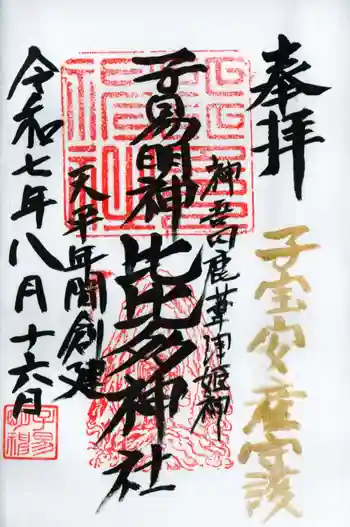 奉拝
子宝安産守護
神吾田鹿葦津姫命
子易明神比比多神社
天平年間創建
令和七年八月十六日